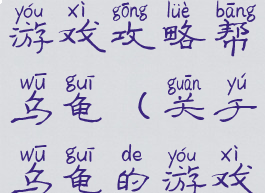 yóu xì gōng lüè bāng
游戏攻略帮
wū guī guān yú
乌龟（关于
wū guī de yóu xì
乌龟的游戏